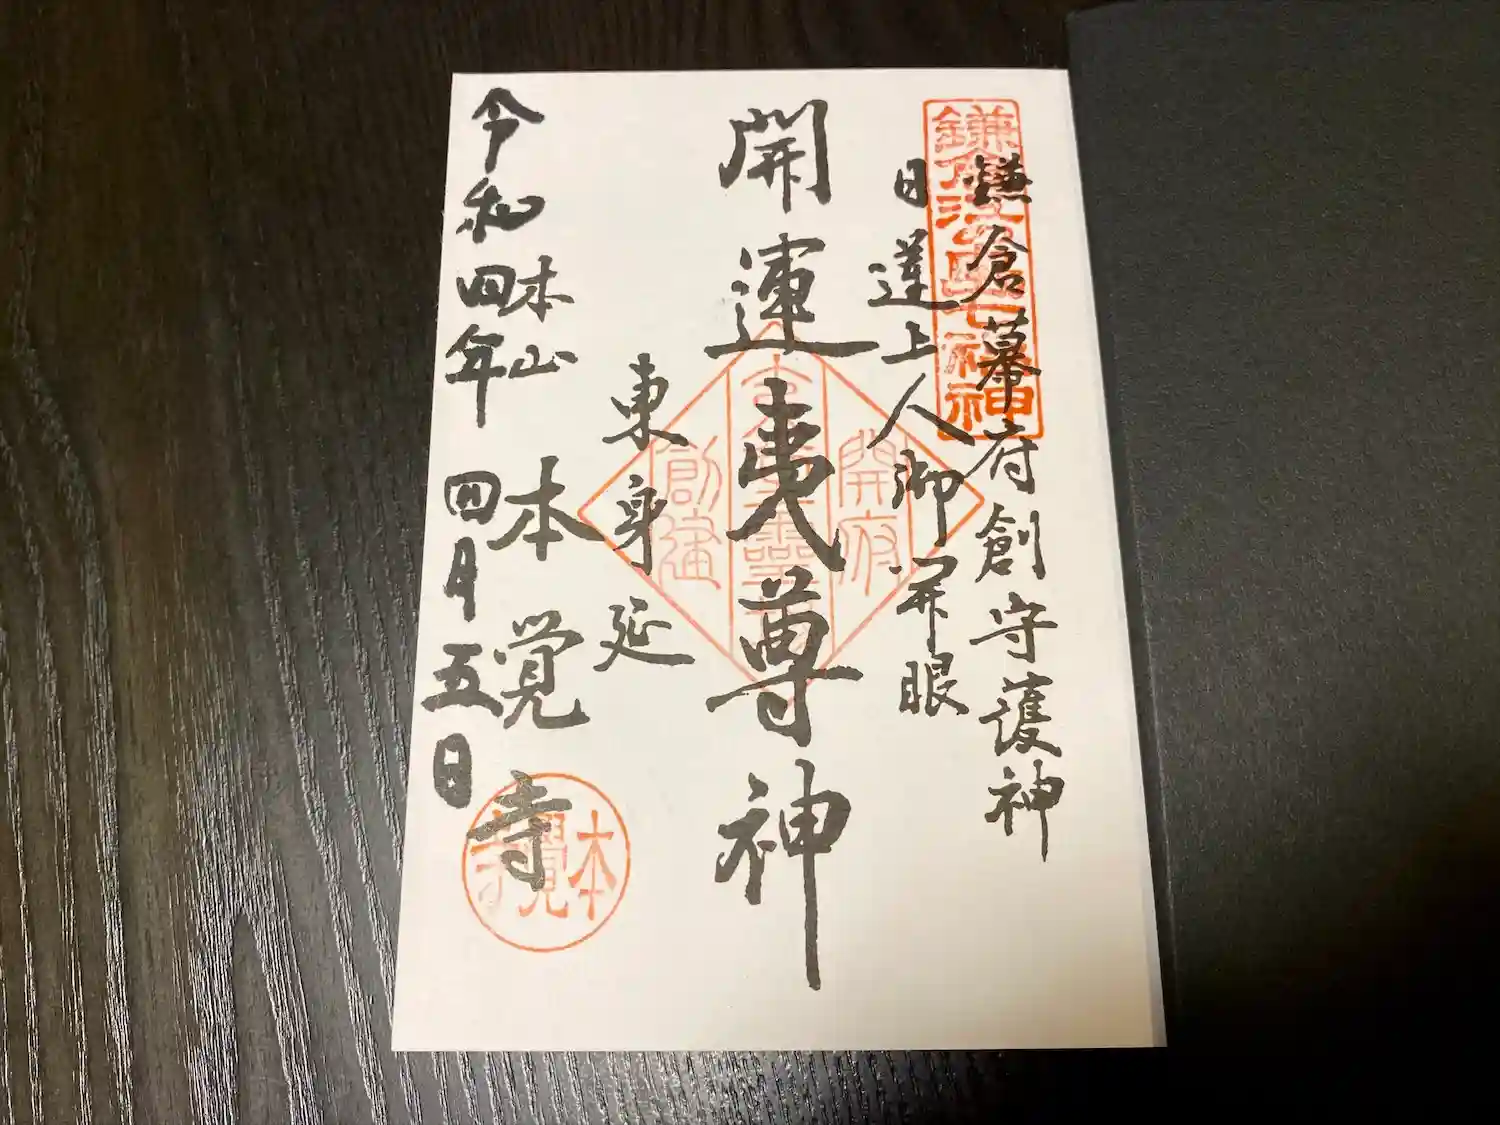 鎌倉幕府創守護神
日蓮上人御開眼
開運夷尊神
東身延
本山
本覚寺
令和四年四月五日
開府
創建
本覺寺